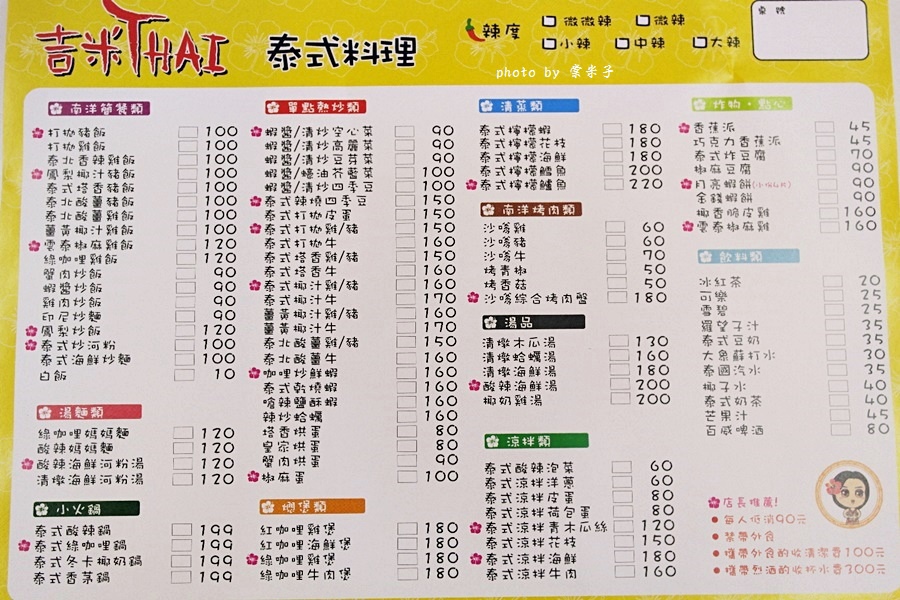 吉米THAI 泰式料理
辣度 微微辣 微辣
小辣 中辣 大辣
桌號
photo by 棠米子
南洋簡餐類
打拋豬飯 100
打拋雞飯 100
泰北香辣雞飯 100
鳳梨椰汁豬飯 100
泰式塔香豬飯 100
泰北酸薑豬飯 100
泰北酸薑雞飯 100
薑黃椰汁雞飯 100
雲泰椒麻雞飯 120
綠咖哩雞飯 120
蟹肉炒飯 90
蝦醬炒飯 90
雞肉炒飯 90
印尼炒麵 90
鳳梨炒飯 120
泰式炒河粉 100
泰式海鮮炒麵 100
白飯 10
湯麵類
綠咖哩媽媽麵 120
酸辣媽媽麵 120
酸辣海鮮河粉湯 120
清燉海鮮河粉湯 120
小火鍋
泰式酸辣鍋 199
泰式綠咖哩鍋 199
泰式冬卡椰奶鍋 199
泰式香茅鍋 199
單點熱炒類
蝦醬/清炒空心菜 90
蝦醬/清炒高麗菜 90
蝦醬/清炒豆芽菜 90
蝦醬/蠔油芥藍菜 100
蝦醬/清炒四季豆 100
泰式辣燒四季豆 150
泰式打拋皮蛋 150
泰式打拋雞/豬 150
泰式打拋牛 160
泰式塔香雞/豬 150
泰式塔香牛 160
泰式椰汁雞/豬 160
泰式椰汁牛 170
薑黃椰汁雞/豬 160
薑黃椰汁牛 170
泰北酸薑雞/豬 150
泰北酸薑牛 160
咖哩炒鮮蝦 160
泰式乾燒蝦 160
嗆辣鹽酥蝦 160
辣炒蛤蠣 160
塔香烘蛋 80
皇家烘蛋 80
蟹肉烘蛋 90
椒麻蛋 100
燜煲類
紅咖哩雞煲 180
紅咖哩海鮮煲 180
綠咖哩雞煲 180
綠咖哩牛肉煲 180
清蒸類
泰式檸檬蝦 180
泰式檸檬花枝 180
泰式檸檬海鮮 180
泰式檸檬鱸魚 200
泰式檸檬魚 220
南洋烤肉類
沙嗲雞 60
沙嗲豬 60
沙嗲牛 70
烤青椒 50
烤香菇 50
沙嗲綜合烤肉盤 180
湯品
清燉木瓜湯 130
清燉蛤蠣湯 160
清燉海鮮湯 180
酸辣海鮮湯 200
椰奶雞湯 200
涼拌類
泰式酸辣泡菜 60
泰式涼拌洋蔥 60
泰式涼拌皮蛋 80
泰式涼拌荷包蛋 80
泰式涼拌青木瓜絲 120
泰式涼拌花枝 150
泰式涼拌海鮮 180
泰式涼拌牛肉 160
炸物・點心
香蕉派 45
巧克力香蕉派 45
泰式炸豆腐 70
椒麻豆腐 90
月亮蝦餅(小份4片) 90
金錢蝦餅 90
椰香脆皮雞 160
雲泰椒麻雞 160
飲料類
冰紅茶 20
可樂 25
雪碧 25
羅望子汁 35
泰式豆奶 35
大象蘇打水 30
泰國汽水 35
椰子水 40
泰式奶茶 40
芒果汁 45
百威啤酒 80
店長推薦!
每人低消90元
禁帶外食
攜帶外食酌收清潔費100元
攜帶烈酒酌收杯水費300元